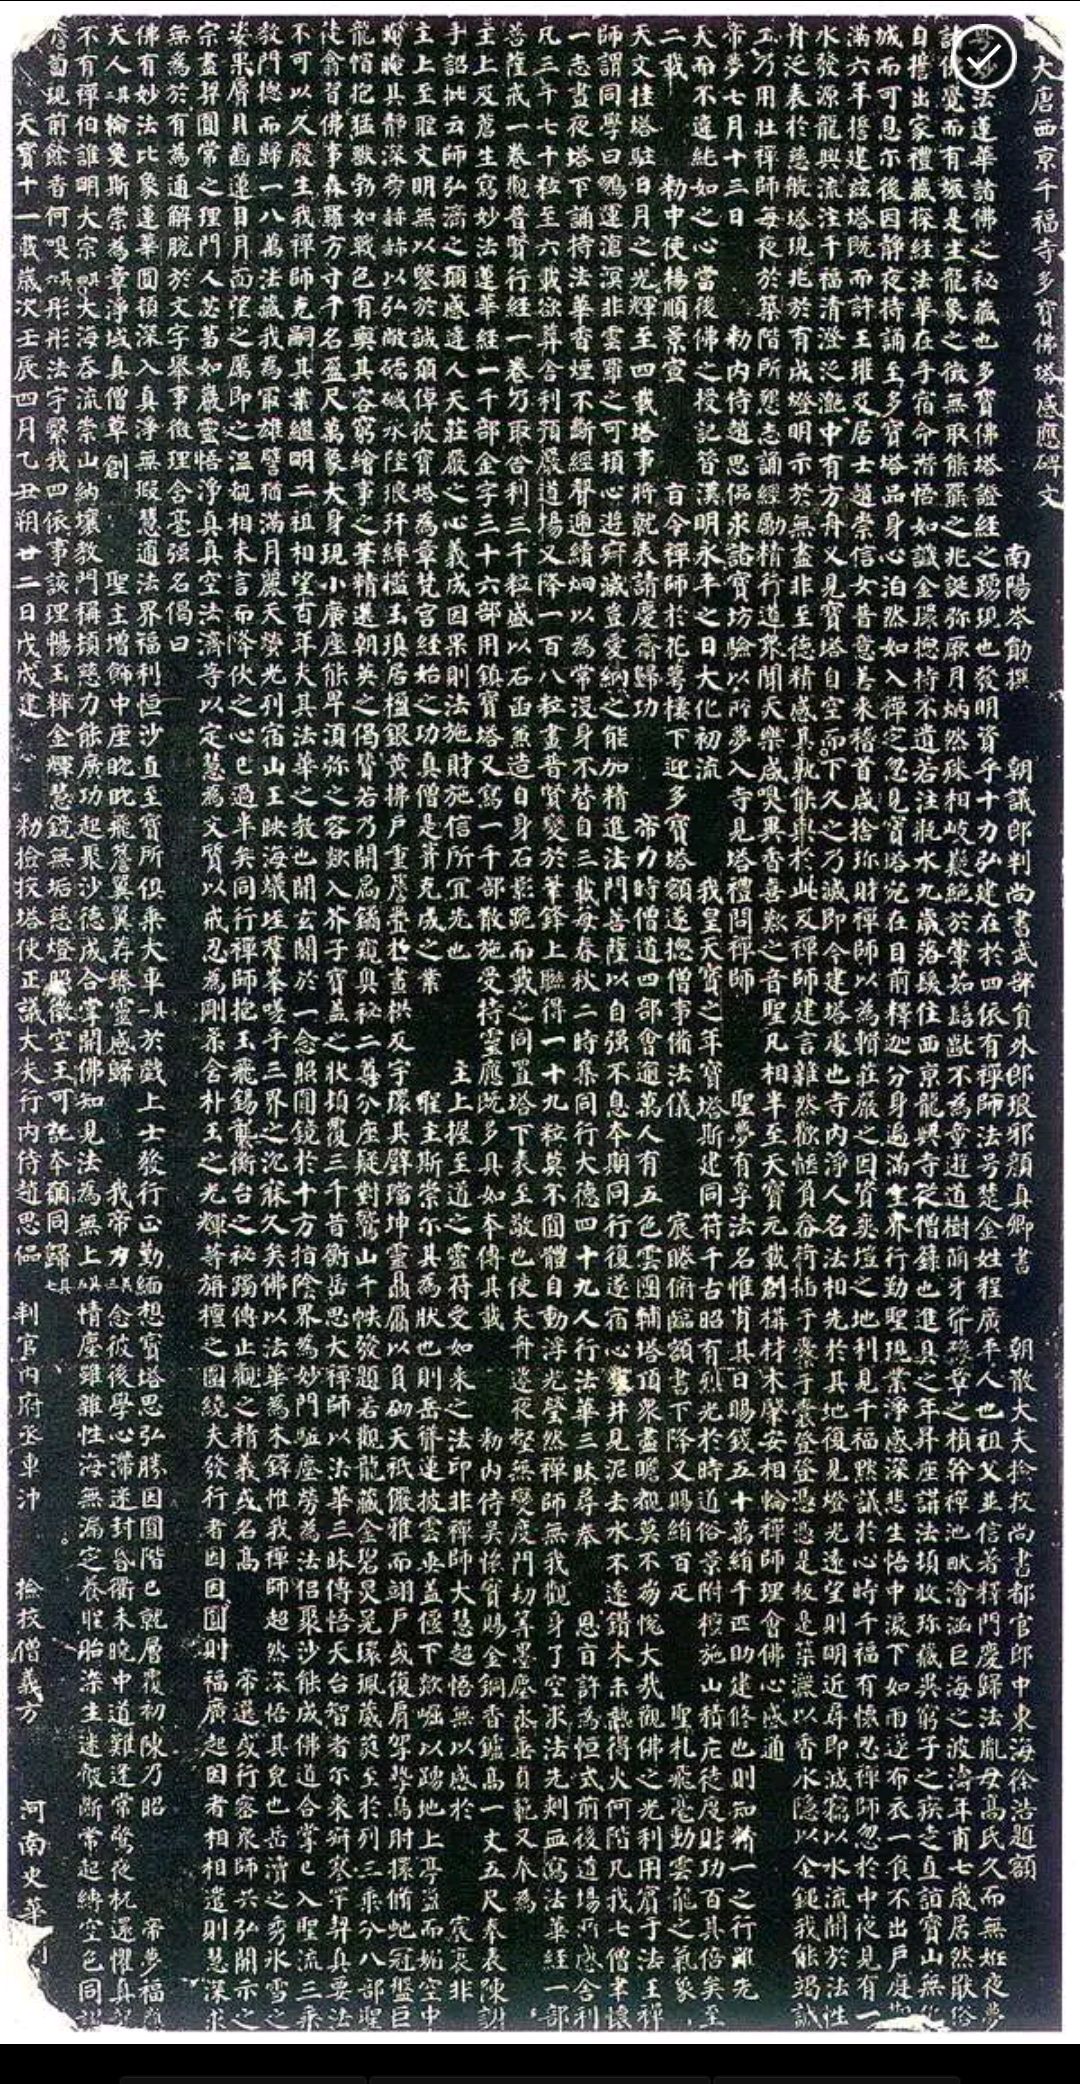 大唐西京千福寺多寶佛塔感應碑文
南陽岑勛撰 朝議郎判尚書武部員外郎琅邪顏真卿書 朝散大夫撿挍尚書都官郎中東海徐浩題額
粵妙法蓮華諸佛之秘藏也多寶佛塔證經之踴現也發明資乎十力弘建在於四依有禪師法号楚金姓程廣平人也祖父並信著釋門慶歸法胤母高氏久而無妊夜夢
諸佛覺而有娠是生龍象之徵無取熊羆之兆誕弥厥月炳然殊相岐嶷絕於葷茹髫齔不為童遊道樹萌牙聳豫章之楨幹禪池畎澮涵巨海之波濤年甫七歲居然猒俗
自誓出家禮藏探經法華在手宿命潛悟如識金環總持不遺若注瓶水九歲落髮住西京龍興寺從僧籙也進具之年昇座講法頓收珍藏異窮子之疾走直詣寶山無化
城而可息尓後因靜夜持誦至多寶塔品身心泊然如入禪定忽見寶塔宛在目前釋迦分身遍滿空界行勤聖現業淨感深悲生悟中淚下如雨遂布衣一食不出戶庭期
滿六年誓建茲塔既而許王瓘及居士趙崇信女普意善來稽首咸捨珍財禪師以為輯莊嚴之因資爽塏之地利見千福默議於心時千福有懷忍禪師忽於中夜見有一
水發源龍興流注千福清澄泛灩中有方舟又見寶塔自空而下久之乃滅即今建塔處也寺內淨人名法相先於其地復見燈光遠望則明近尋即滅竊以水流開於法性
舟泛表於慈航塔現兆於有成燈明示於無盡非至德精感其孰能與於此及禪師建言雜然歡愜負畚荷插于橐于囊登登憑憑是板是築灑以香水隱以金鎚我能竭誠
工乃用壯禪師每夜於築階所懇志誦經勵精行道眾聞天樂咸嗅異香喜歎之音聖凡相半至天寶元載創構材木肇安相輪禪師理會佛心感通
帝夢七月十三日 勑內侍趙思偘求諸寶坊驗以所夢入寺見塔禮問禪師 聖夢有孚法名惟肖其日賜錢五十萬絹千匹助建修也則知精一之行雖先
天而不違純如之心當後佛之授記昔漢明永平之日大化初流 我皇天寶之年寶塔斯建同符千古昭有烈光於時道俗景附檀施山積庀徒度財功百其倍矣至
二載 勑中使楊順景宣 旨令禪師於花萼樓下迎多寶塔額遂總僧事備法儀 宸睠俯臨額書下降又賜絹百疋 聖札飛毫動雲龍之氣象
天文挂塔駐日月之光輝至四載塔事將就表請慶齋歸功 帝力時僧道四部會逾萬人有五色雲團輔塔頂眾盡瞻覩莫不崩悅大哉觀佛之光利用賓于法王禪
師謂同學曰鵬運滄溟非雲羅之可頓心遊寂滅豈愛網之能加精進法門菩薩以自強不息本期同行復遂宿心鑿井見泥去水不遠鑽木未熱得火何階凡我七僧聿懷
一志晝夜塔下誦持法華香煙不斷經聲遞續炯以為常沒身不替自三載每春秋二時集同行大德四十九人行法華三昧尋奉 恩旨許為恒式前後道場所感舍利
凡三千七十粒至六載欲葬舍利預嚴道場又降一百八粒畫普賢變於筆鋒上聯得一十九粒莫不圓體自動浮光瑩然禪師無我觀身了空求法先刺血寫法華經一部
菩薩戒一卷觀普賢行經一卷乃取舍利三千粒盛以石函兼造自身石影跪而戴之同置塔下表至敬也使夫舟遷夜壑無變度門劫筭墨塵永垂貞範又奉為
主上及蒼生寫妙法蓮華經一千部金字三十六部用鎮寶塔又寫一千部散施受持靈應既多具如本傳其載 勑內侍吳懷實賜金銅香鑪高一丈五尺奉表陳謝
手詔批云師弘濟之願感達人天莊嚴之心義成因果則法施財施信所宜先也 主上握至道之靈符受如來之法印非禪師大慧超悟無以感於 宸衷非
主上至聖文明無以鑒於誠願倬彼寶塔為章梵宮經始之功真僧是葺克成之業 聖主斯崇尓其為狀也則岳聳蓮披雲垂盖偃下欻崛以踊地上亭盈而媚空中
晻晻其靜深旁赫赫以弘敞礝磩承陛琅玕綷檻玉瑱居楹銀黃拂戶重簷疊於畫栱反宇環其璧璫坤靈贔屭以負砌天祇儼雅而翊戶或復肩拏摯鳥肘擐脩虵冠盤巨
龍帽抱猛獸勃如戰色有奭其容窮繪事之筆精選朝英之偈贊若乃開扃鐍窺奧秘二尊分座疑對鷲山千帙發題若觀龍藏金碧炅晃環珮葳蕤至於列三乘分八部聖
徒翕習佛事森羅方寸千名盈尺萬象大身現小廣座能卑須弥之容欻入芥子寶盖之狀頓覆三千昔衡岳思大禪師以法華三昧傳悟天台智者尓來寂寥罕契真要法
不可以久廢生我禪師克嗣其業繼明二祖相望百年夫其法華之教也開玄關於一念照圓鏡於十方指陰界為妙門駈塵勞為法侶聚沙能成佛道合掌已入聖流三乘
教門總而歸一八萬法藏我為最雄譬猶滿月麗天螢光列宿山王映海蟻垤群峯嗟乎三界之沉寐久矣佛以法華為木鐸惟我禪師超然深悟其皃也岳瀆之秀冰雪之
姿果脣貝齒蓮目月面望之厲即之溫覩相未言而降伏之心已過半矣同行禪師抱玉飛錫襲衡台之秘躅傳止觀之精義或名高 帝選或行密眾師共弘開示之
宗盡契圓常之理門人苾芻如巖靈悟淨真真空法濟等以定慧為文質以戒忍為剛柔含朴玉之光輝等旃檀之圍繞夫發行者因因圓則福廣起因者相相遣則慧深求
無為於有為通解脫於文字舉事徵理含毫強名偈曰
佛有妙法比象蓮華圓頓深入真淨無瑕慧通法界福利恒沙直至寶所俱乘大車其一於戲上士發行正勤緬想寶塔思弘勝因圓階已就層覆初陳乃昭 帝夢福應
天人其二輪奐斯崇為章淨域真僧草創 聖主增飾中座眈眈飛簷翼翼荐臻靈感歸 我帝力其三念彼後學心滯迷封昏衢未曉中道難逢常驚夜枕還懼真龍
不有禪伯誰明大宗其四大海吞流崇山納壤教門稱頓慈力能廣功起聚沙德成合掌開佛知見法為無上其五情塵雖雜性海無漏定養聖胎染生迷鷇斷常起縛空色同謬
薝蔔現前餘香何嗅其六彤彤法宇繄我四依事該理暢玉粹金輝慧鏡無垢慈燈照微空王可託本願同歸其七
天寶十一載歲次壬辰四月乙丑朔廿二日戊戌建 勑撿挍塔使正議大夫行內侍趙思偘 判官內府丞車沖 撿挍僧義方 河南史華刻